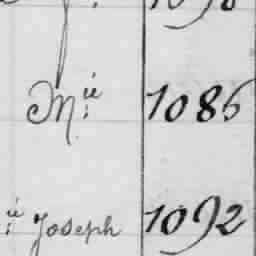 Mie 1086
ie Joseph 1092